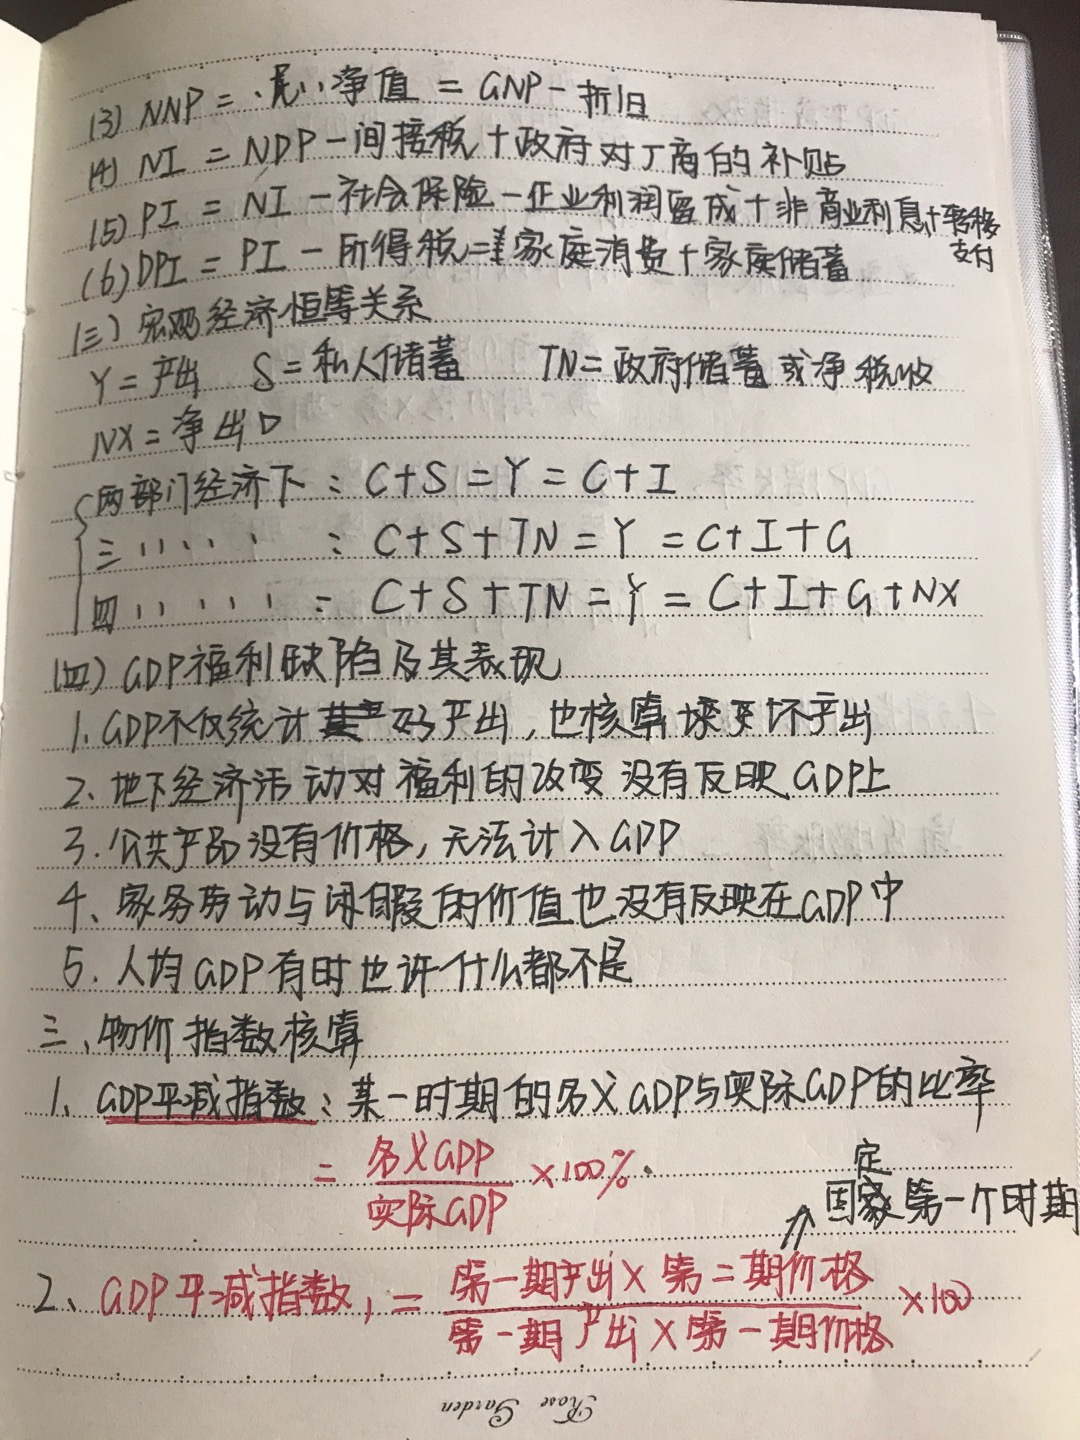 (3) NNP = 净值 = GNP - 折旧
(4) NI = NDP - 间接税 + 政府对厂商的补贴
(5) PI = NI - 社会保险 - 企业利润留成 + 非商业利息 + 转移
支付
(6) DPI = PI - 所得税 = 家庭消费 + 家庭储蓄
(三) 宏观经济恒等关系
Y = 产出 S = 私人储蓄 TN = 政府储蓄或净税收
NX = 净出口
两部门经济下 : C+S = Y = C+I
三 〃 : C+S+TN = Y = C+I+G
四 〃 : C+S+TN = Y = C+I+G+NX
(四) GDP福利缺陷及其表现
1. GDP不仅统计好产出, 也核算坏产出
2、地下经济活动对福利的改变没有反映GDP上
3. 公共产品没有价格, 无法计入GDP
4、家务劳动与闲暇的价值也没有反映在GDP中
5. 人均GDP有时也许什么都不是
三、物价指数核算
1、GDP平减指数: 某一时期的名义GDP与实际GDP的比率
= 名义GDP
实际GDP × 100%
定
国家第一个时期
2、GDP平减指数, = 第一期产出 × 第二期价格
第一期产出 × 第一期价格 × 100
Rose Garden